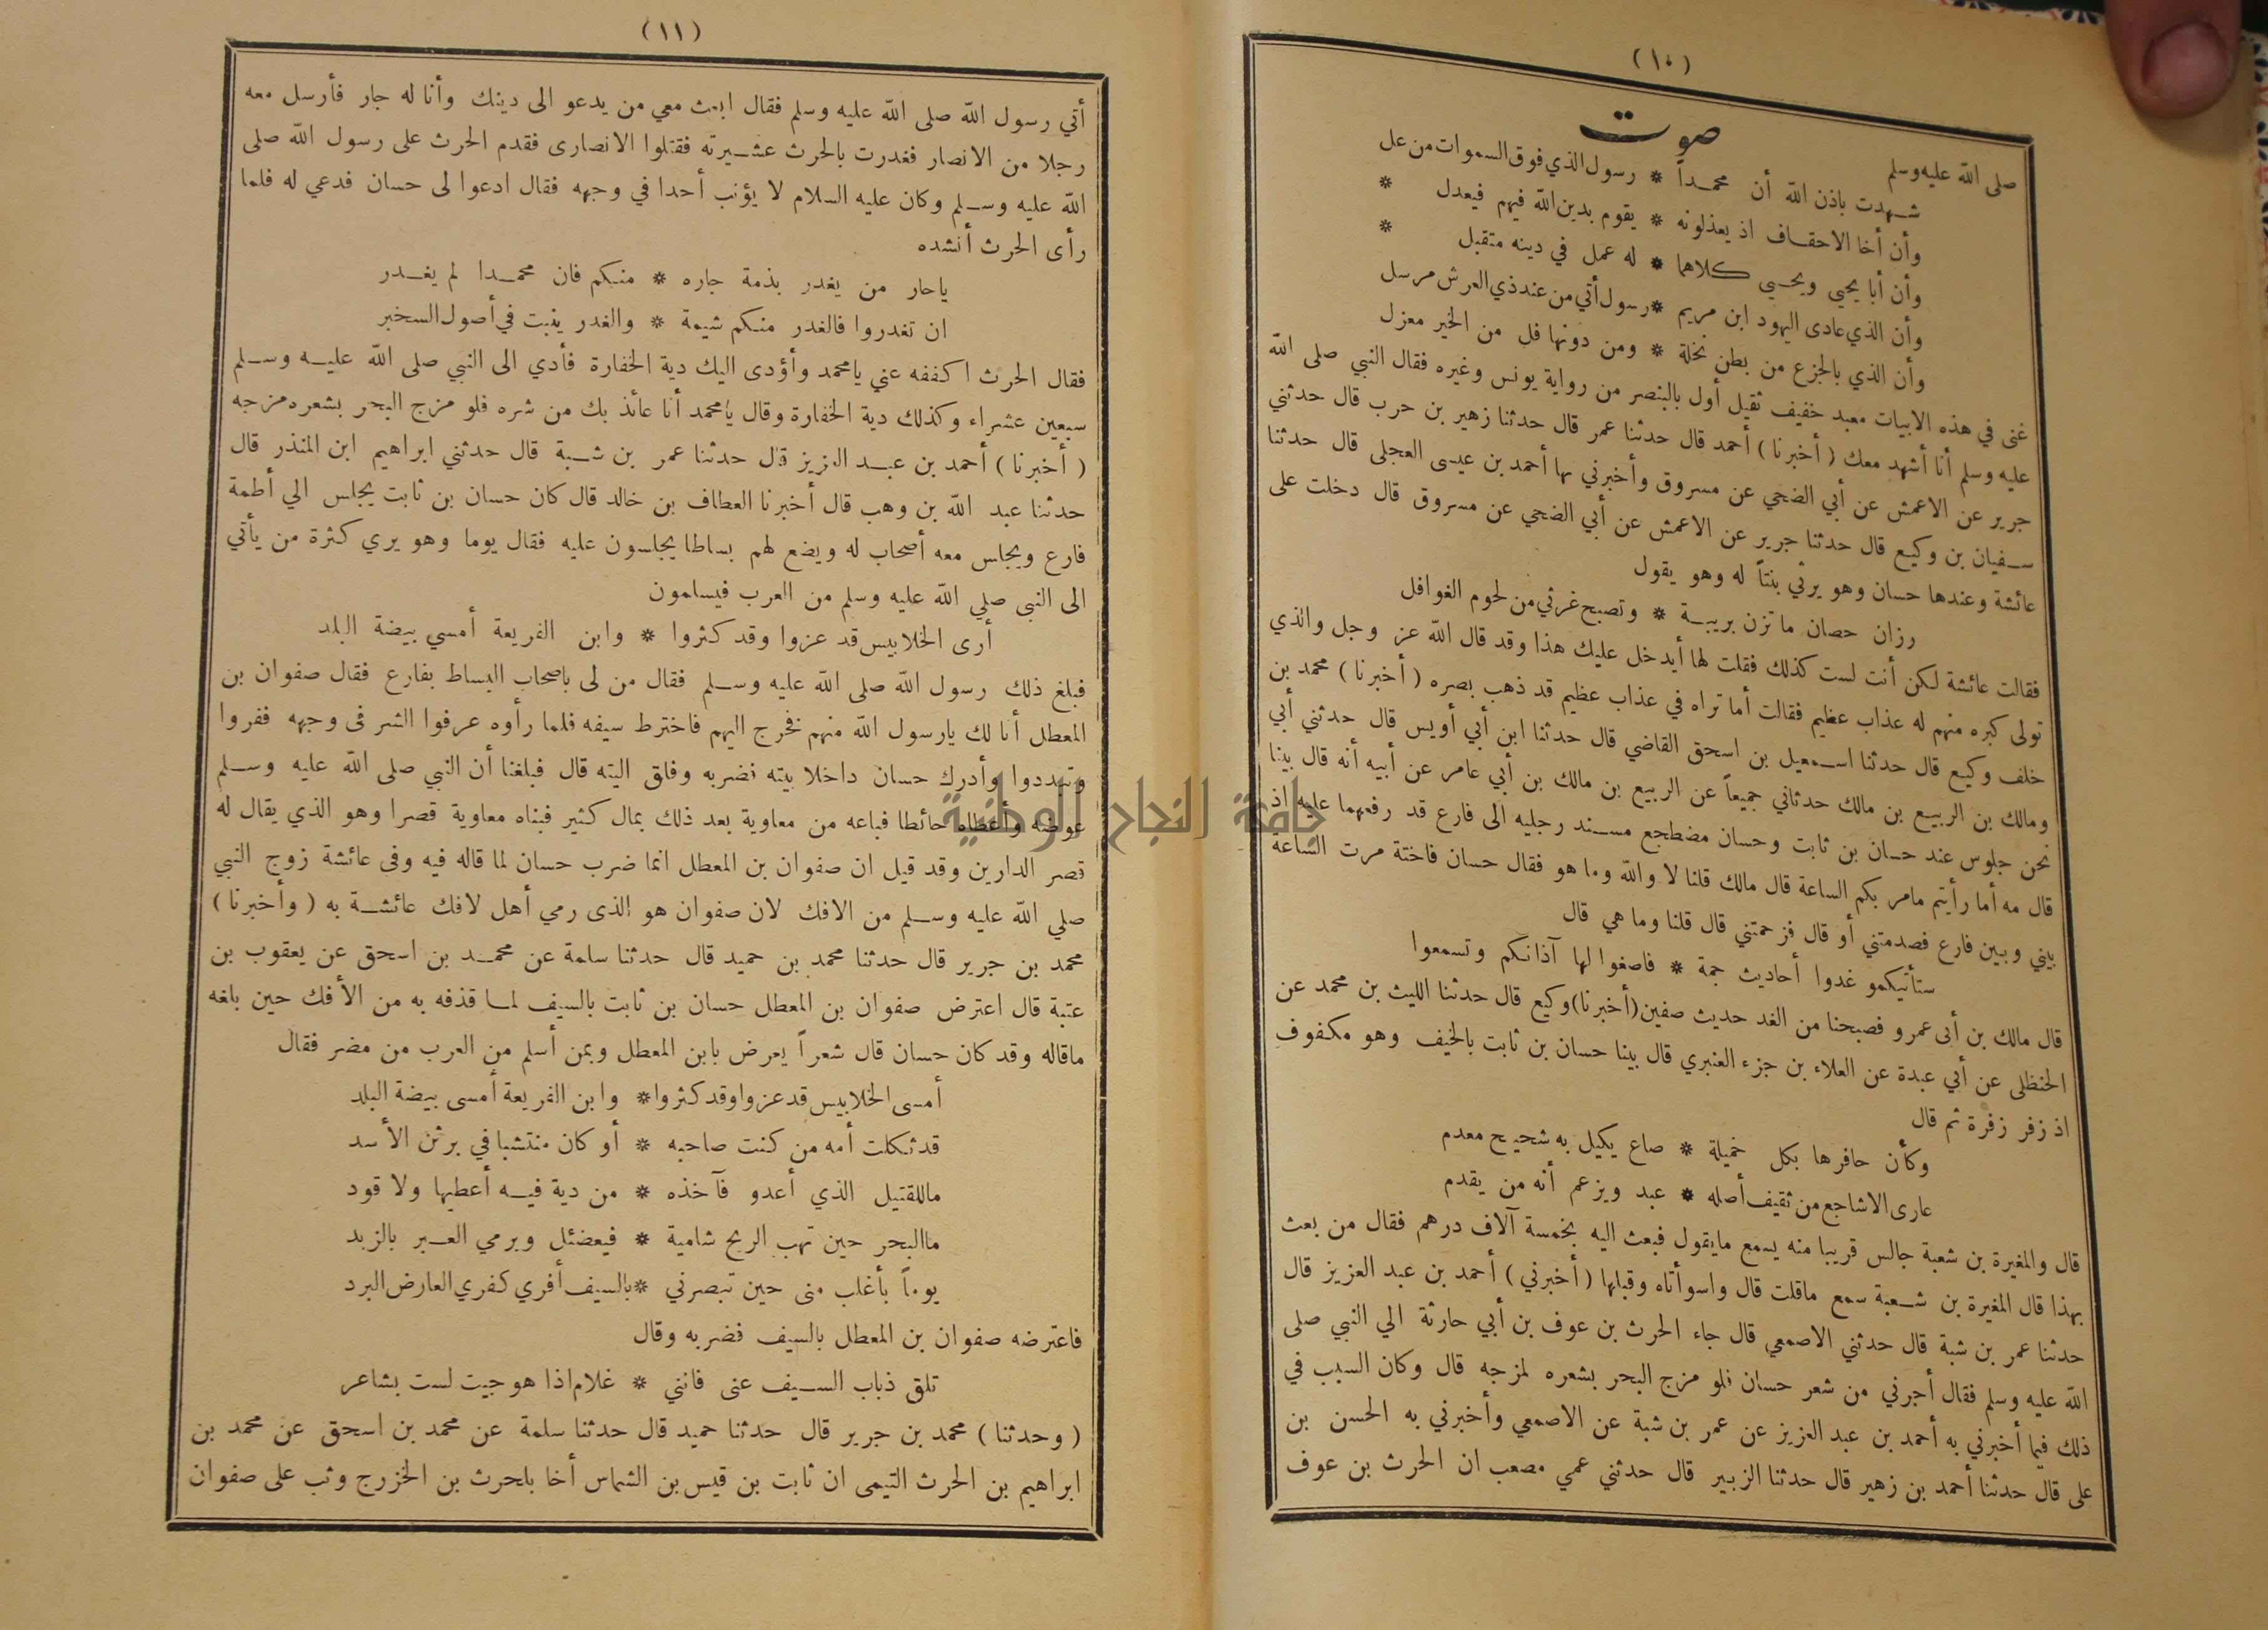 (١٠)
صوت
صلى الله عليه وسلم
شهدت باذن الله أن محمداً * رسول الذي فوق السموات من عل
وأن أخا الاحقاف اذ يعذلونه * يقوم بدين الله فيهم فيعدل *
وأن أبا يحيي ويحيي كلاهما * له عمل في دينه متقبل *
وأن الذي عادى اليهود ابن مريم * رسول أتي من عند ذي العرش مرسل
وأن الذي بالجزع من بطن نخلة * ومن دونها فل من الخير معزل
غنى في هذه الابيات معبد خفيف ثقيل أول بالبنصر من رواية يونس وغيره فقال النبي صلى الله
عليه وسلم أنا أشهد معك (أخبرنا) أحمد قال حدثنا عمر قال حدثنا زهير بن حرب قال حدثني
جرير عن الاعمش عن أبي الضحي عن مسروق وأخبرني بها أحمد بن عيسى العجلى قال حدثنا
سفيان بن وكيع قال حدثنا جرير عن الاعمش عن أبي الضحي عن مسروق قال دخلت على
عائشة وعندها حسان وهو يرثي بنتاً له وهو يقول
رزان حصان ما تزن بريبة * وتصبح غرثي من لحوم الغوافل
فقالت عائشة لكن أنت لست كذلك فقلت لها أيدخل عليك هذا وقد قال الله عز وجل والذي
تولى كبره منهم له عذاب عظيم فقالت أما تراه في عذاب عظيم قد ذهب بصره (أخبرنا) محمد بن
خلف وكيع قال حدثنا اسمعيل بن اسحق القاضي قال حدثنا ابن أبي أويس قال حدثني أبي
ومالك بن الربيع بن مالك حدثاني جميعاً عن الربيع بن مالك بن أبي عامر عن أبيه أنه قال بينا
نحن جلوس عند حسان بن ثابت وحسان مضطجع مسند رجليه الى فارع قد رفعهما عليه اذ
قال مه أما رأيتم مامر بكم الساعة قال مالك قلنا لا والله وما هو فقال حسان فاختة مرت الساعة
بيني وبين فارع فصدمتني أو قال فزحمتني قال قلنا وما هي قال
ستأتيكمو غدوا أحاديث جمة * فاصغوا لها آذانكم وتسمعوا
قال مالك بن أبى عمرو فصبحنا من الغد حديث صفين (أخبرنا) وكيع قال حدثنا الليث بن محمد عن
الحنظلى عن أبي عبدة عن العلاء بن جزء العنبري قال بينا حسان بن ثابت بالخيف وهو مكفوف
اذ زفر زفرة ثم قال
وكأن حافرها بكل خميلة * صاع يكيل به شحيح معدم
عارى الاشاجع من ثقيف أصله * عبد ويزعم أنه من يقدم
قال والمغيرة بن شعبة جالس قريبا منه يسمع مايقول فبعث اليه بخمسة آلاف درهم فقال من بعث
بهذا قال المغيرة بن شعبة سمع ماقلت قال واسوأتاه وقبلها (أخبرني) أحمد بن عبد العزيز قال
حدثنا عمر بن شبة قال حدثني الاصمعي قال جاء الحرث بن عوف بن أبي حارثة الي النبي صلى
الله عليه وسلم فقال أجرني من شعر حسان فلو مزج البحر بشعره لمزجه قال وكان السبب في
ذلك فيما أخبرني به أحمد بن عبد العزيز عن عمر بن شبة عن الاصمعي وأخبرني به الحسن بن
على قال حدثنا أحمد بن زهير قال حدثنا الزبير قال حدثني عمي مصعب ان الحرث بن عوف
(١١)
أتي رسول الله صلى الله عليه وسلم فقال ابعث معي من يدعو الى دينك وأنا له جار فأرسل معه
رجلا من الانصار فغدرت بالحرث عشيرته فقتلوا الانصارى فقدم الحرث على رسول الله صلى
الله عليه وسلم وكان عليه السلام لا يؤنب أحدا في وجهه فقال ادعوا لى حسان فدعي له فلما
رأى الحرث أنشده
ياحار من يغدر بذمة جاره * منكم فان محمدا لم يغدر
ان تغدروا فالغدر منكم شيمة * والغدر ينبت في أصول السخبر
فقال الحرث اكففه عني يامحمد وأؤدى اليك دية الخفارة فأدي الى النبي صلى الله عليه وسلم
سبعين عشراء وكذلك دية الخفارة وقال يامحمد أنا عائذ بك من شره فلو مزج البحر بشعره مزجه
(أخبرنا) أحمد بن عبد العزيز قال حدثنا عمر بن شبة قال حدثني ابراهيم ابن المنذر قال
حدثنا عبد الله بن وهب قال أخبرنا العطاف بن خالد قال كان حسان بن ثابت يجلس الي أطمة
فارع ويجلس معه أصحاب له ويضع لهم بساطا يجلسون عليه فقال يوما وهو يري كثرة من يأتي
الى النبى صلي الله عليه وسلم من العرب فيسلمون
أرى الخلابيس قد عزوا وقد كثروا * وابن الفريعة أمسي بيضة البلد
فبلغ ذلك رسول الله صلى الله عليه وسلم فقال من لى باصحاب البساط بفارع فقال صفوان بن
المعطل أنا لك يارسول الله منهم فخرج اليهم فاخترط سيفه فلما رأوه عرفوا الشر فى وجهه ففروا
وتبددوا وأدرك حسان داخلا بيته فضربه وفلق اليته قال فبلغنا أن النبي صلى الله عليه وسلم
عوضه وأعطاه حائطا فباعه من معاوية بعد ذلك بمال كثير فبناه معاوية قصرا وهو الذي يقال له
قصر الدارين وقد قيل ان صفوان بن المعطل انما ضرب حسان لما قاله فيه وفى عائشة زوج النبي
صلي الله عليه وسلم من الافك لان صفوان هو الذى رمي أهل لافك عائشة به (وأخبرنا)
محمد بن جرير قال حدثنا محمد بن حميد قال حدثنا سلمة عن محمد بن اسحق عن يعقوب بن
عتبة قال اعترض صفوان بن المعطل حسان بن ثابت بالسيف لما قذفه به من الأفك حين بلغه
ماقاله وقد كان حسان قال شعراً يعرض بابن المعطل وبمن أسلم من العرب من مضر فقال
أمسى الخلابيس قد عزوا وقد كثروا * وابن الفريعة أمسى بيضة البلد
قد ثكلت أمه من كنت صاحبه * أو كان منتشبا في برثن الأسد
ماللقتيل الذي أعدو فآخذه * من دية فيه أعطيها ولا قود
ماالبحر حين تهب الريح شامية * فيعضئل ويرمي العبر بالزبد
يوماً بأغلب منى حين تبصرني * بالسيف أفري كفري العارض البرد
فاعترضه صفوان بن المعطل بالسيف فضربه وقال
تلق ذباب السيف عنى فانني * غلام اذا هوجيت لست بشاعر
(وحدثنا) محمد بن جرير قال حدثنا حميد قال حدثنا سلمة عن محمد بن اسحق عن محمد بن
ابراهيم بن الحرث التيمى ان ثابت بن قيس بن الشماس أخا بلحرث بن الخزرج وثب على صفوان
جامعة النجاح الوطنية